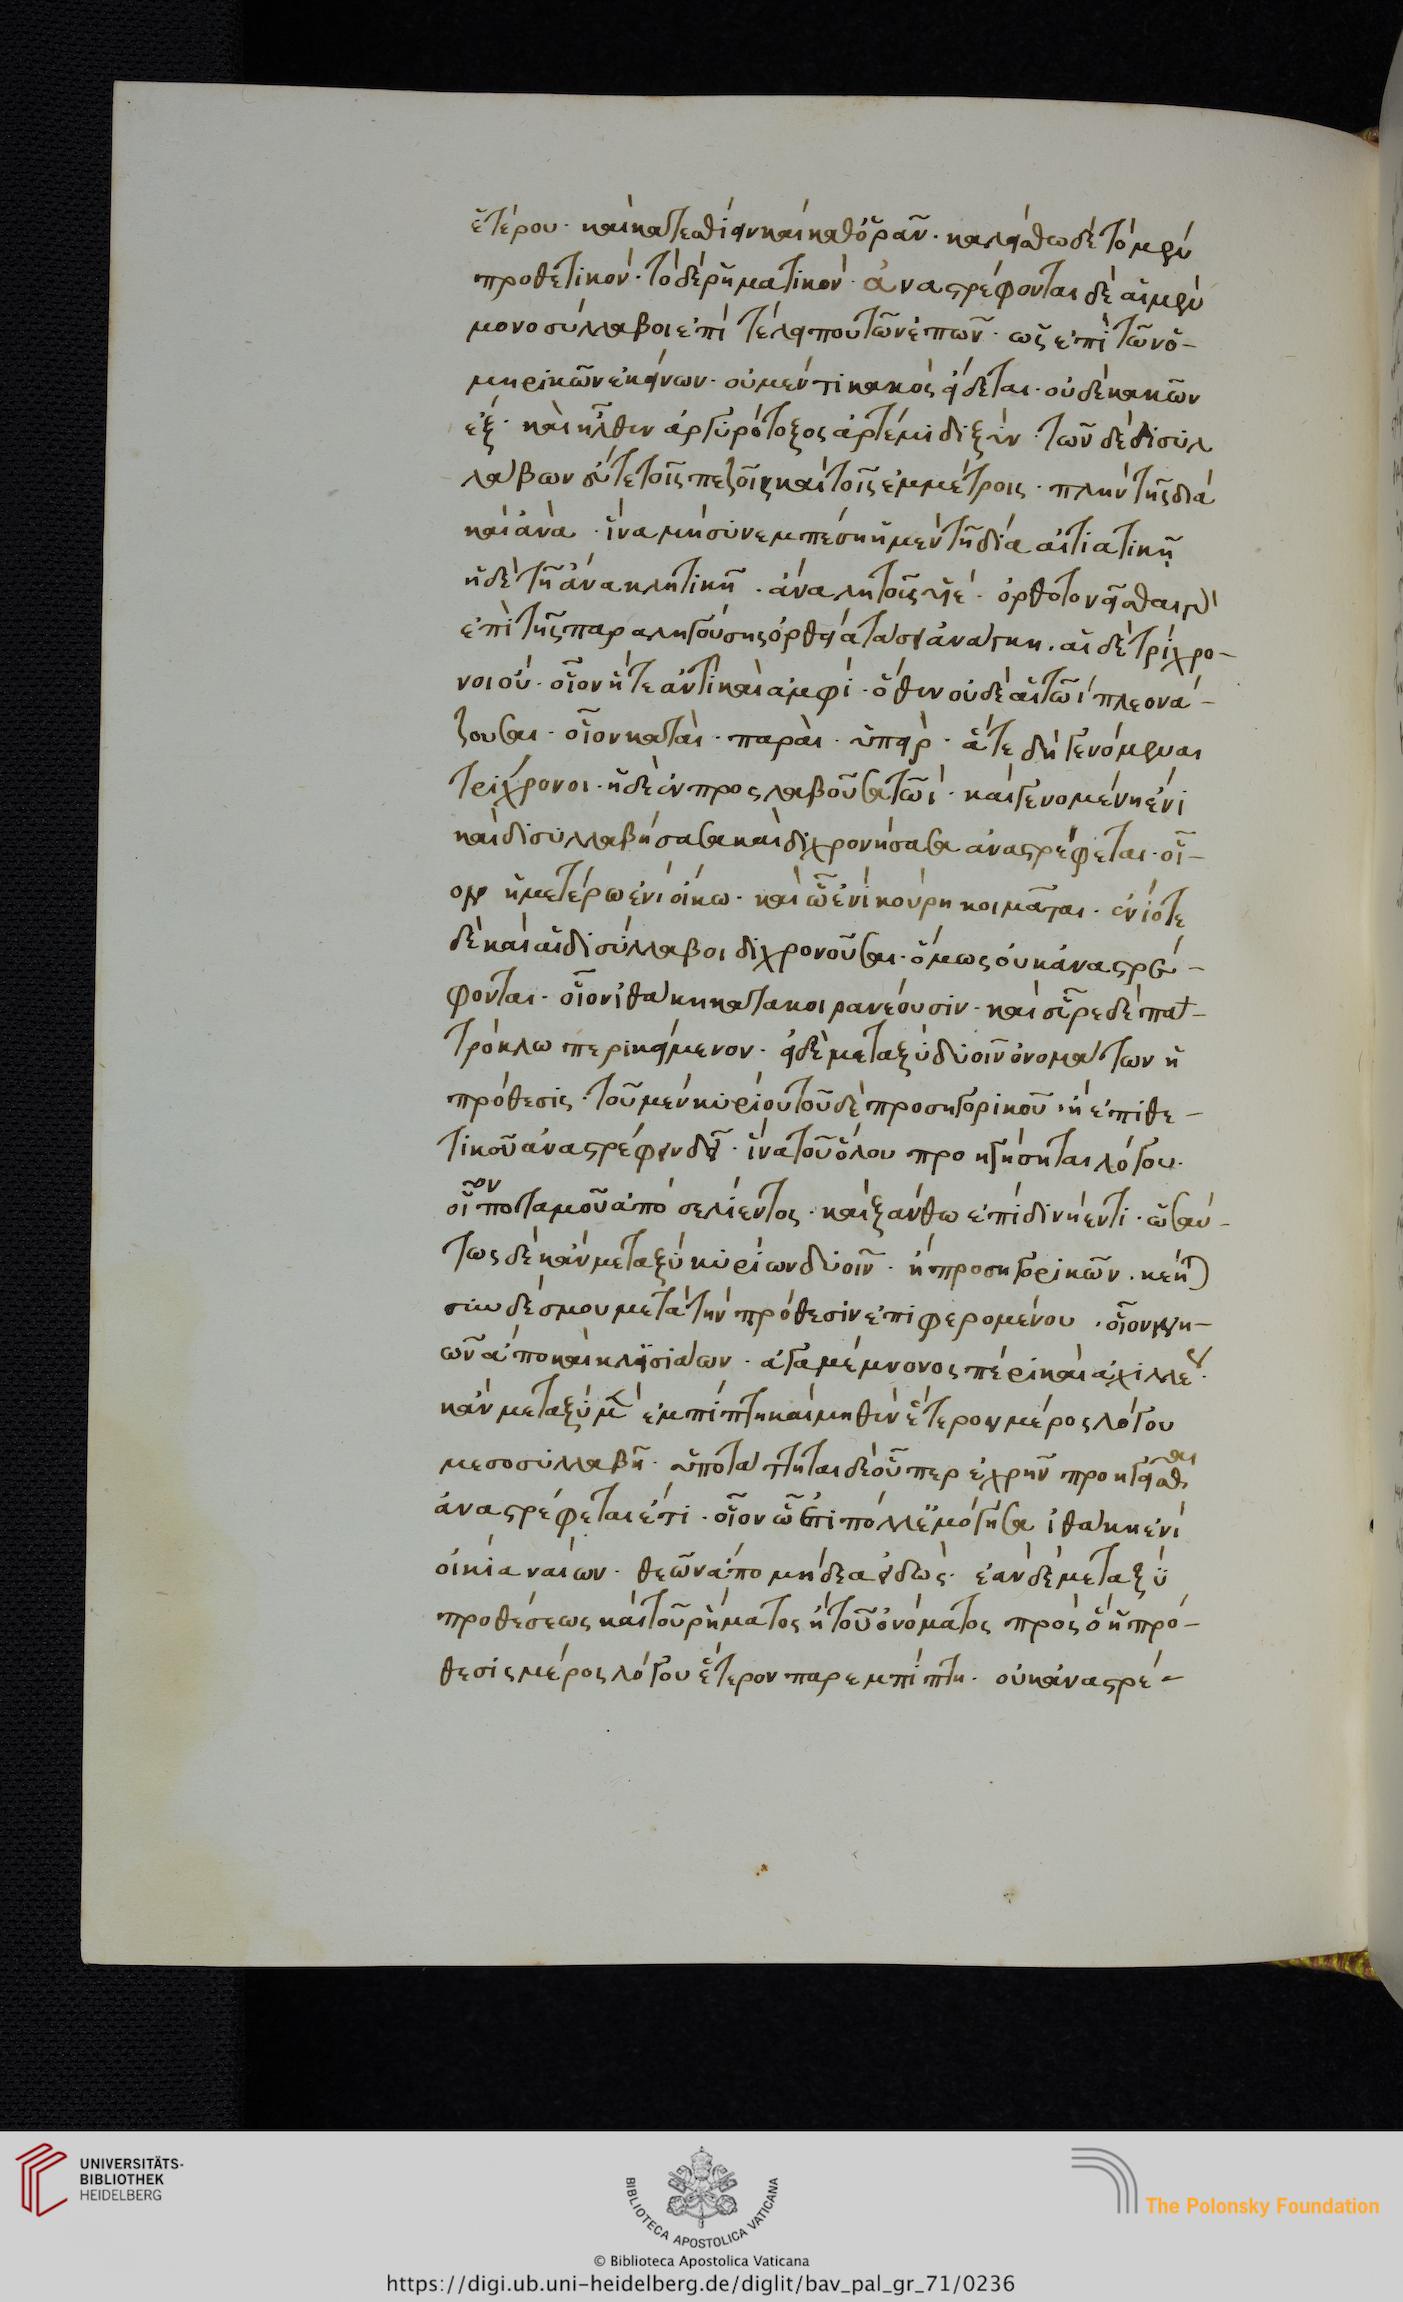 ἑτέρου· καὶ κατεσθίειν καὶ καθορᾶν· καλείσθω δὲ τὸ μὲν
προθετικόν· τὸ δὲ ῥηματικόν· ἀναστρέφονται δὲ αἱ μὲν
μονοσύλλαβοι ἐπὶ τέλει που τῶν ἐπῶν· ὡς ἐπὶ τῶν ὁ-
μηρικῶν ἐκείνων· οὐ μέν τι κακὸς εἴδεται· οὐδὲ κακῶν
ἐξ· καὶ ἦλθεν ἀργυρότοξος ἀρτέμιδι ξὺν· τῶν δὲ δισυλ
λάβων ἔν τε τοῖς πεζοῖς καὶ τοῖς ἐμμέτροις· πλὴν τῆς διὰ
καὶ ἀνὰ· ἵνα μὴ συνεμπέση ἡ μὲν τῆ δία αἰτιατικῆ
ἡ δὲ τῆ ἄνα κλητικῆ· ὀρθοτονεῖσθαι
ἐπὶ τῆς παραληγούσης ὀρθεία τάσει ἀνάγκη· αἱ δὲ τρίχρο-
νοι οὔ· οἷον ἥ τε ἀντὶ καὶ ἀμφί· ὅθεν οὐδὲ αἱ τῶ ι πλεονά-
ζουσαι· οἷον καταὶ· παραὶ· ὑπεὶρ· ἅτε δὴ γενόμεναι
τρίχρονοι· ἡ δὲ ἐν προσλαβοῦσα τῶ ι· καὶ γενομένη ἐνὶ
καὶ δισυλλαβήσασα καὶ διχρονήσασα ἀναστρέφεται· οἷ-
ον ἡμετέρω ἐνὶ οἴκω· καὶ ὧ ἔνι κούρη κοιμᾶται· ἐνίοτε
δὲ καὶ αἱ δισύλλαβοι διχρονοῦσαι· ὅμως οὐκ ἀναστρέ-
φονται· οἷον ἰθάκην κατακοιρανέουσιν· καὶ εὗρε δὲ πατ-
τρόκλω περικείμενον· εἰ δὲ μεταξὺ δυοῖν ὀνομάτων ἡ
πρόθεσις· τοῦ μὲν κυρίου τοῦ δὲ προσηγορικοῦ· ἢ ἐπιθε-
τικοῦ ἀναστρέφειν δεῖ· ἵνα τοῦ ὅλου προηγήσηται λόγου·
οἷον ποταμοῦ ἀπὸ σελήεντος· καὶ ξάνθω ἐπὶ δινήεντι· ὡσαύ-
τως δὲ κἂν μεταξὺ κυρίων δυοῖν· ἢ προσηγορικῶν·
συνδέσμου μετὰ τὴν πρόθεσιν ἐπιφερομένου· οἷον νη-
ῶν ἄπο καὶ κλισιάων· ἀγαμέμνονος πέρι καὶ ἀχιλλέ·
κἂν μεταξὺ μὴ ἐμπίπτη καὶ μηθὲν ἕτερον μέρος λόγου
μεσοσυλλαβῆ· ὑποτάττηται δὲ οὗπερ ἐχρῆν προηγεῖσθαι
ἀναστρέφεται ἔτι· οἷον ὧ ἔπι πόλλ' ἐμόγησα ἰθάκη ἔνι
οἰκία ναίων· θεῶν ἄπο μήδεα εἰδώς· ἐὰν δὲ μεταξὺ
προθέσεως καὶ τοῦ ῥήματος ἢ τοῦ ὀνόματος πρὸς ὃ ἡ πρό-
θεσις μέρος λόγου ἕτερον παρεμπίπτη· οὐκ ἀναστρέ-
UNIVERSITÄTS-
BIBLIOTHEK
HEIDELBERG
BIBLIOTECA APOSTOLICA VATICANA
The Polonsky Foundation
© Biblioteca Apostolica Vaticana
https://digi.ub.uni-heidelberg.de/diglit/bav_pal_gr_71/0236